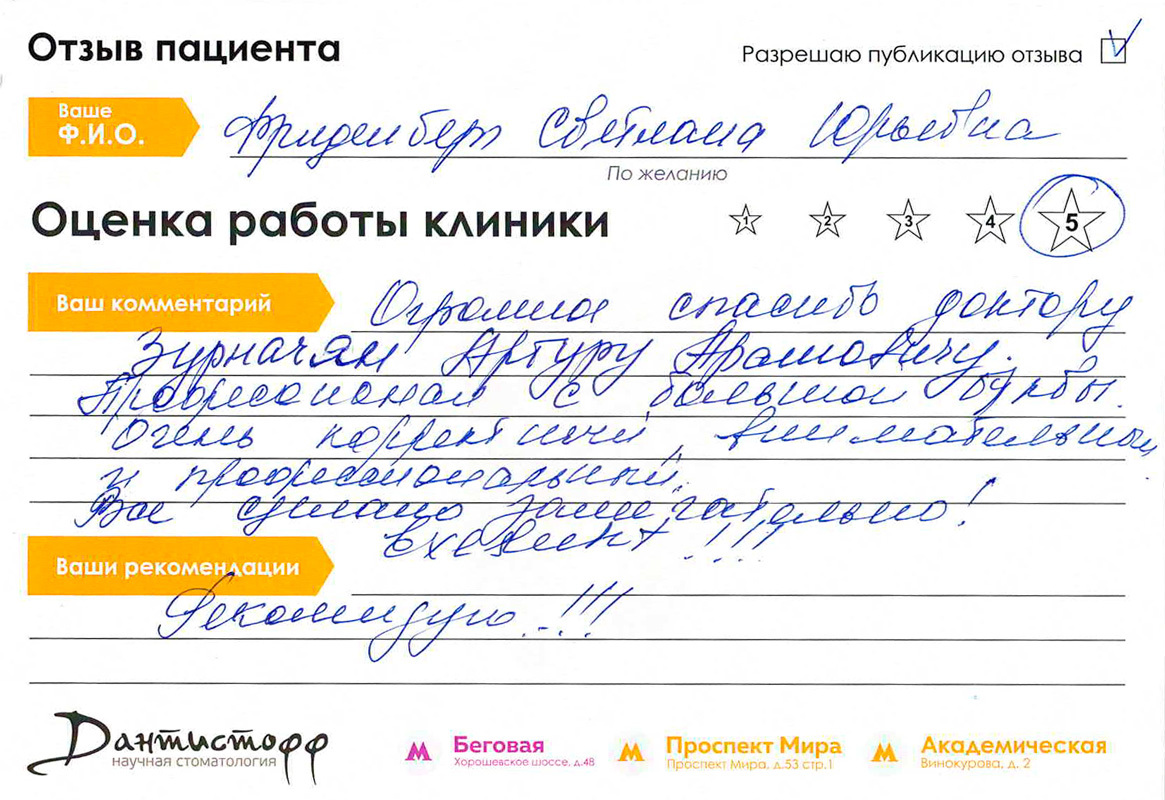 Отзыв пациента
Разрешаю публикацию отзыва
Ваше
Ф.И.О.
Фриденберг Светлана Юрьевна
По желанию
Оценка работы клиники
1 2 3 4 5
Ваш комментарий
Огромное спасибо доктору
Зурначян Артуру Арамовичу.
Профессионал с большой буквы.
Очень корректный, внимательный
и профессиональный.
Все сделано замечательно!
Ваши рекомендации
Рекомендую...!!!
Дантистофф
научная стоматология
М Беговая
Хорошевское шоссе, д.48
М Проспект Мира
Проспект Мира, д.53 стр.1
М Академическая
Винокурова, д. 2